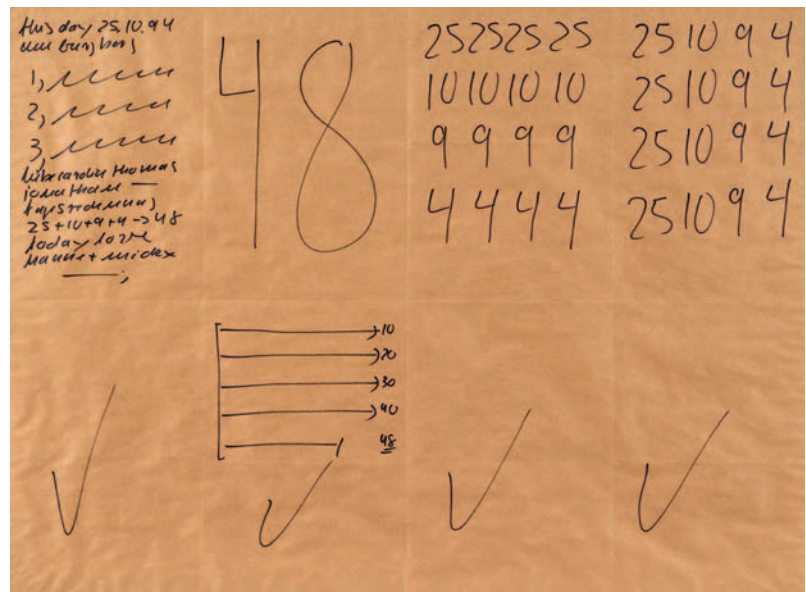 this day 25.10.94
1,
2,
3,
thomas
25+10+9+4→48
today love
hanne+
48
25 25 25 25
10 10 10 10
9 9 9 9
4 4 4 4
25 10 9 4
25 10 9 4
25 10 9 4
25 10 9 4
10
20
30
40
48